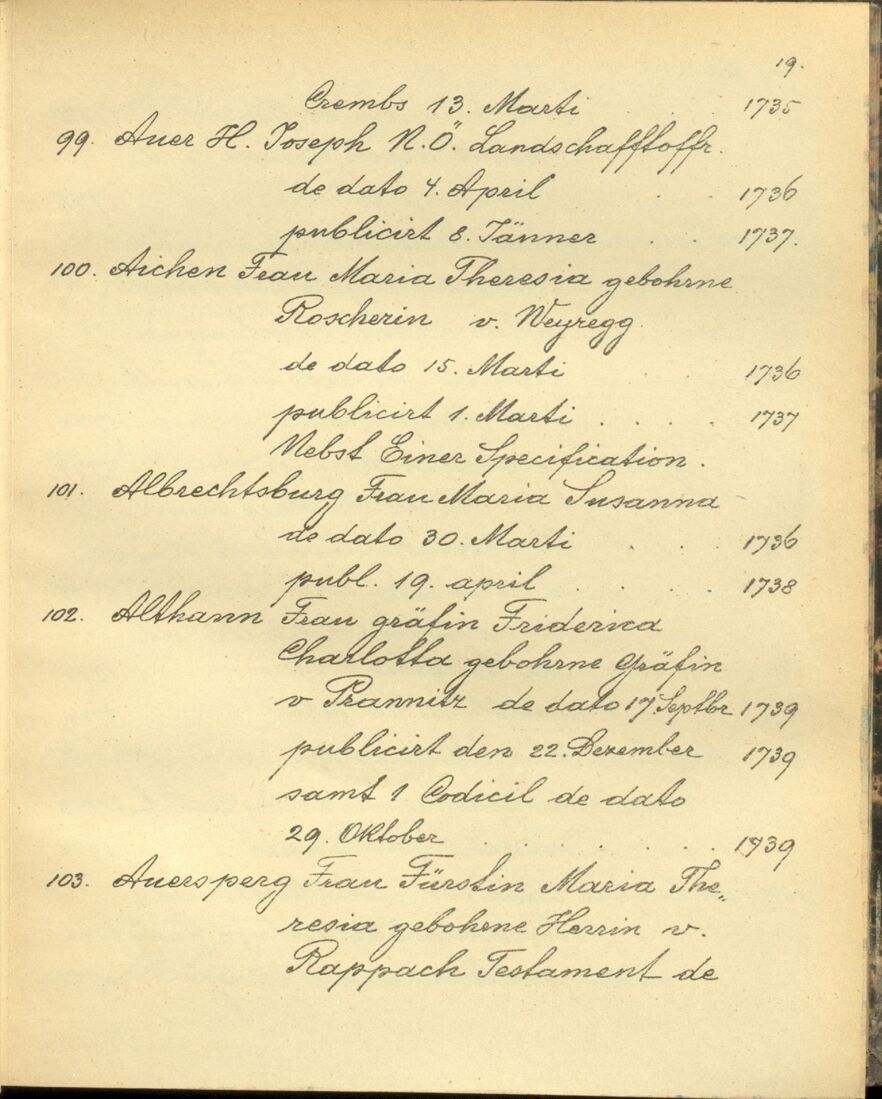 19.
Crembs 13. Marti . . . 1735
99. Auer H. Joseph N.Ö. Landschafftoffr.
de dato 4. April . . . 1736
publicirt 8. Jänner . . . 1737.
100. Aichen Frau Maria Theresia gebohrne
Roscherin v. Weyregg
de dato 15. Marti . . . 1736
publicirt 1. Marti . . . . 1737
Nebst Einer Specification.
101. Albrechtsburg Frau Maria Susanna
de dato 30. Marti . . . 1736
publ. 19. april . . . . 1738
102. Althann Frau gräfin Friderica
Charlotta gebohrne Gräfin
v Prannitz de dato 17 Septbr 1739
publicirt den 22. Dezember 1739
samt 1 Codicil de dato
29. Oktober . . . . . . 1739
103. Auersperg Frau Fürstin Maria The„
resia gebohrne Herrin v.
Rappach Testament de